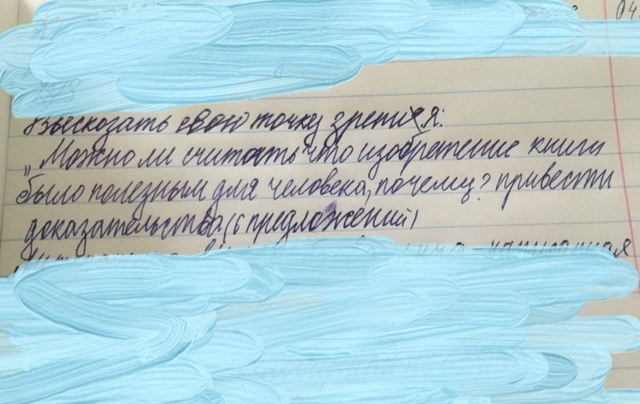 Высказать свою точку зрения:
„Можно ли считать что изобретение книги
было полезным для человека, почему? привести
доказательства (6 предложений)
написанная